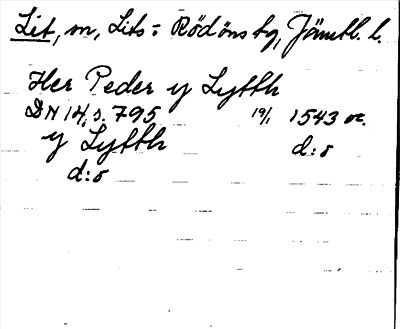 Lit, m, Lits = Rödöns tg, Jämtl. l.
Her Peder y Lytth
DN 14, s. 795 19/1 1543 or.
y Lytth d:o
d:o